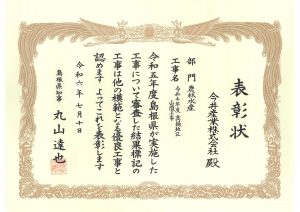 表彰状
今井産業株式会社 殿
部門 農林水産
工事名
山腹工事
令和五年度島根県が実施した
工事について審査した結果標記の
工事は他の模範となる優良工事と
認めます よってこれを表彰します
令和六年七月十日
島根県知事 丸山達也